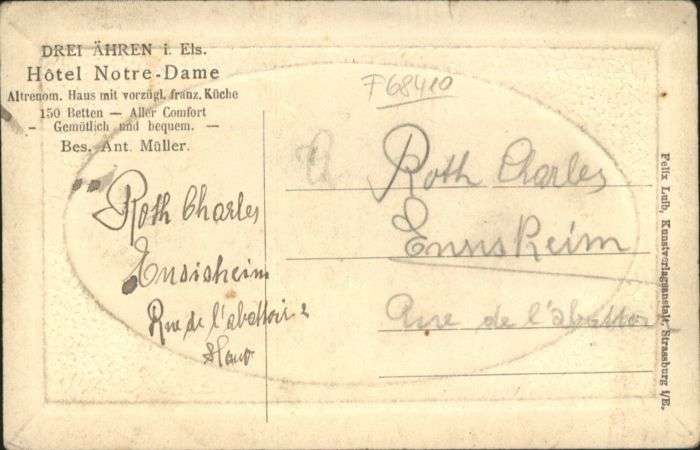 DREI ÄHREN i. Els.
Hôtel Notre-Dame
Altrenom. Haus mit vorzügl. franz. Küche
150 Betten — Aller Comfort
— Gemütlich und bequem. —
Bes. Ant. Müller.
F68410
Roth Charles
Ensisheim
Rue de l'abattoir
Roth Charles
Ennsheim
Rue de l'abattoir
Felix Luib, Kunstverlagsanstalt, Strassburg i/E.